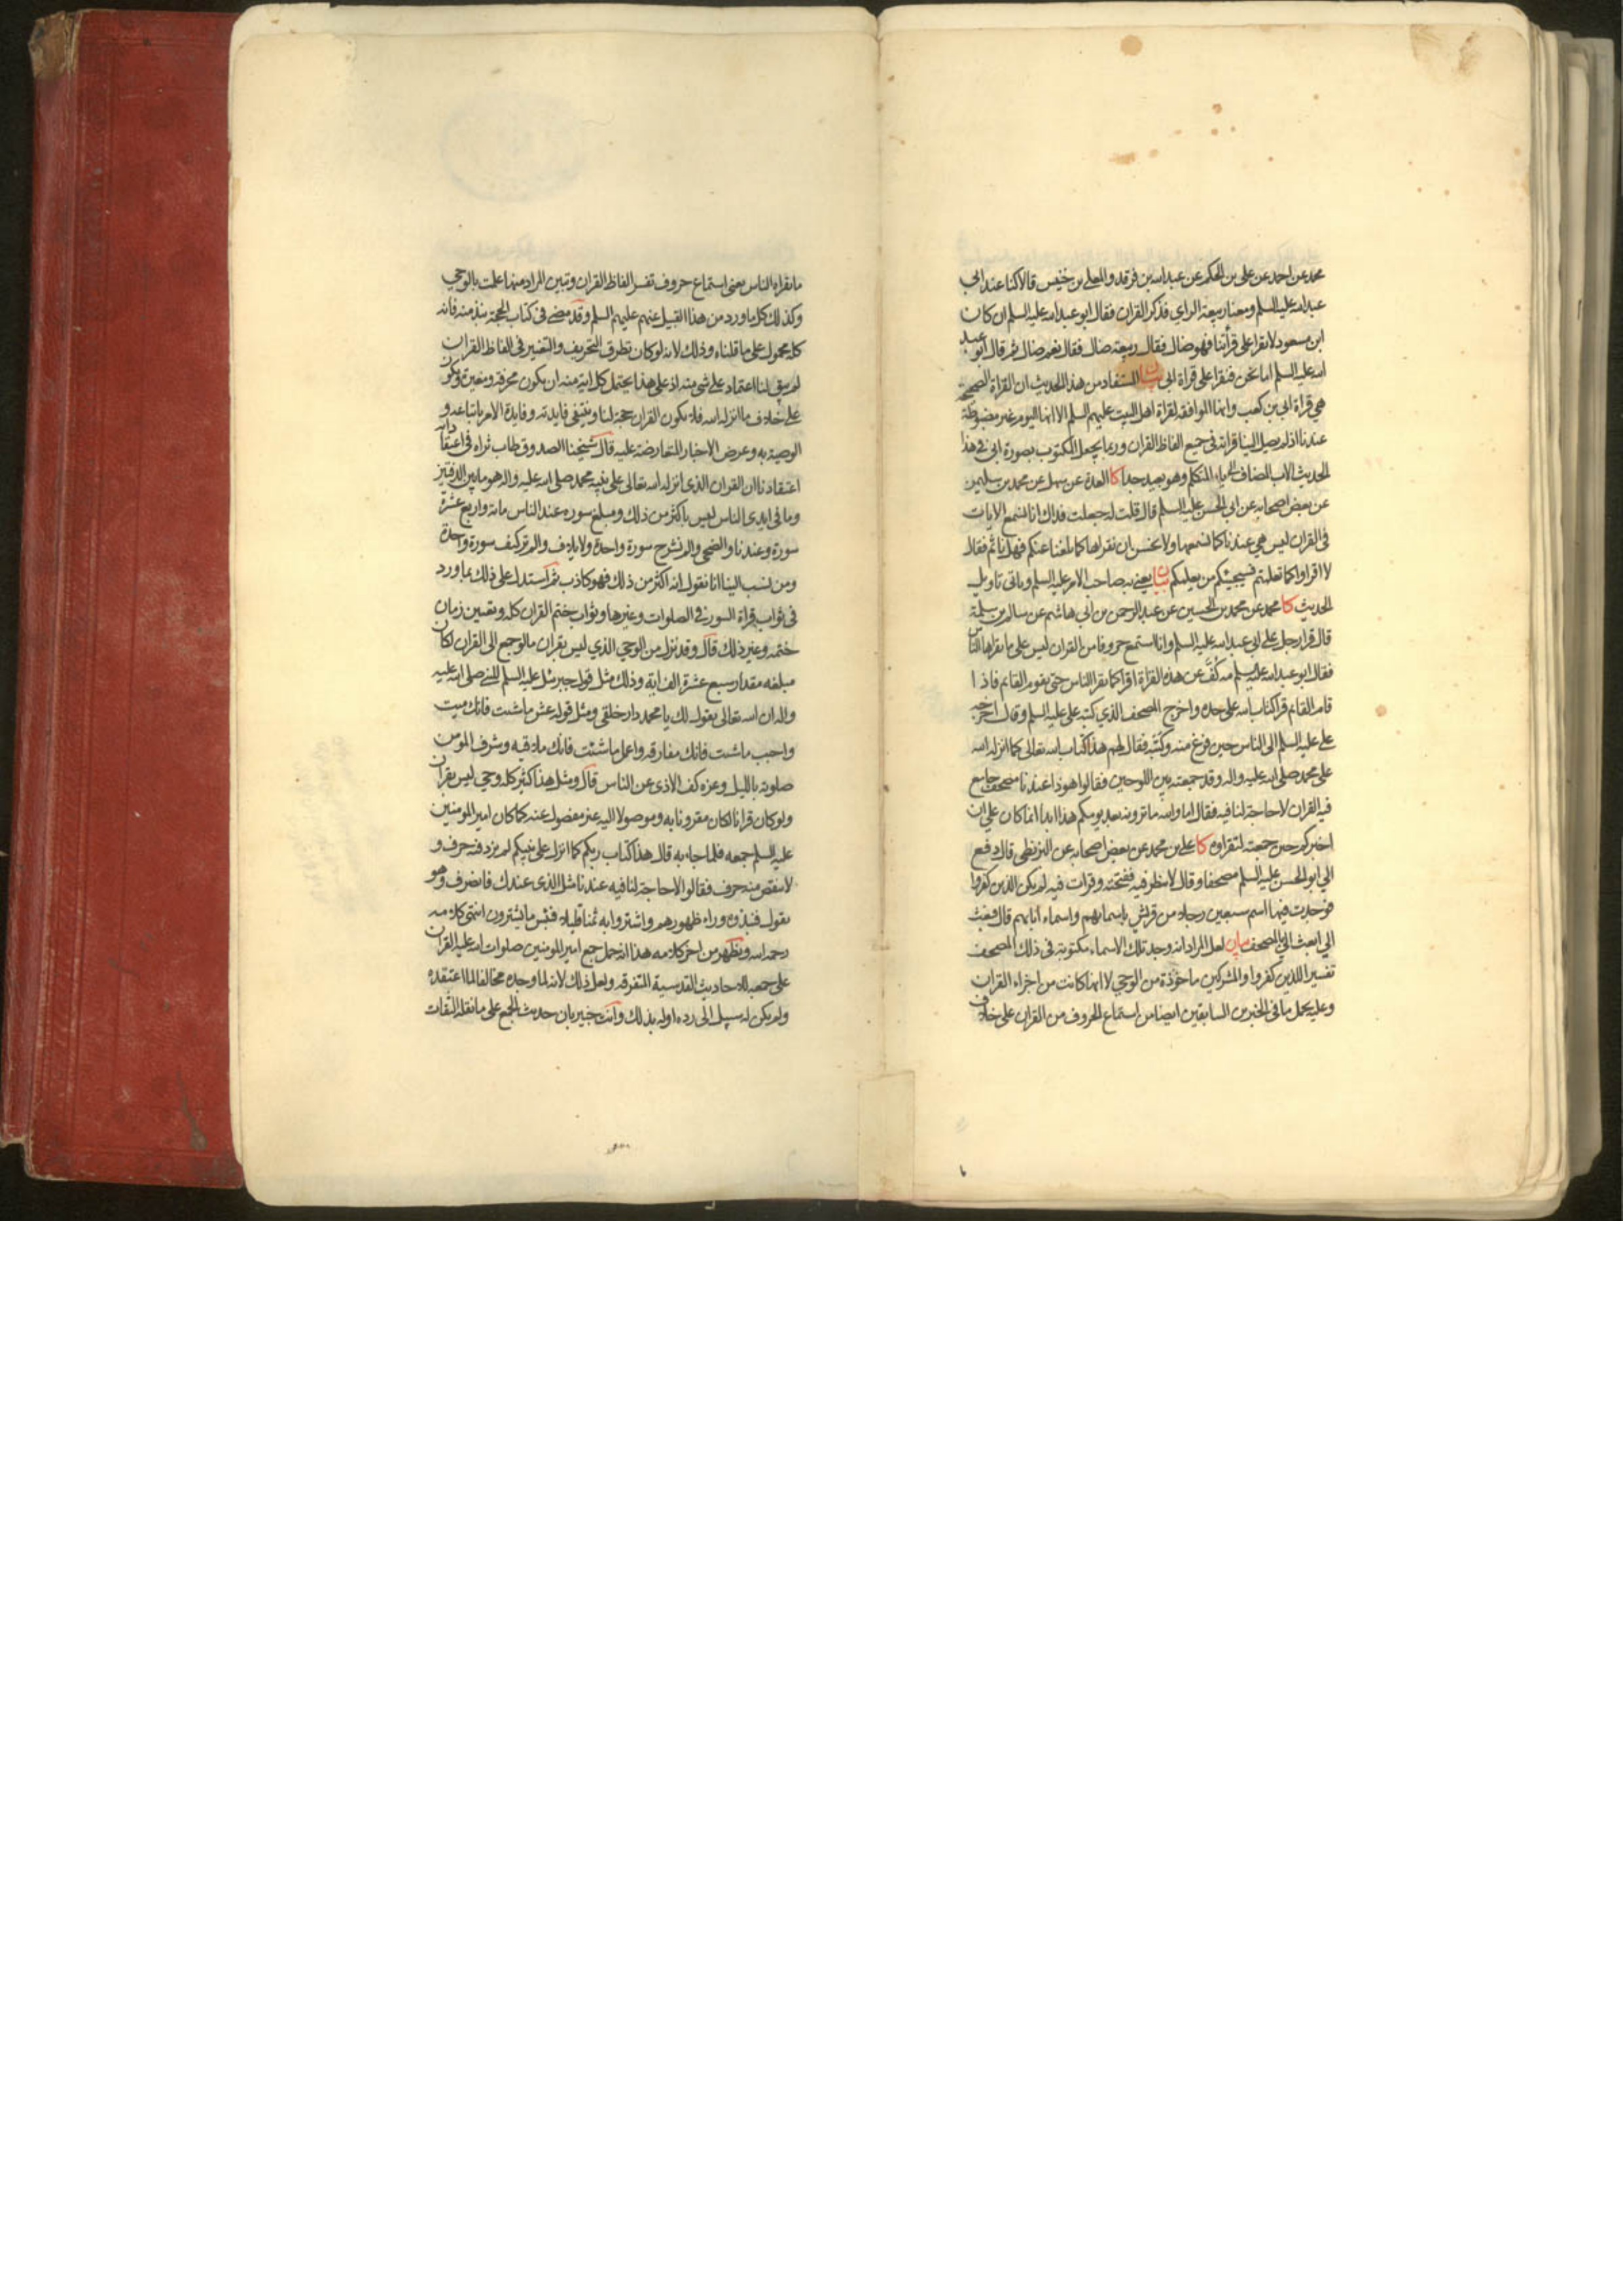 محمد عن احمد عن علي بن الحكم عن عبدالله بن فرقد والمعلى بن خنيس قالا كنا عند ابي
عبدالله عليه السلم ومعنا ربيعة الراي فذكر القران فقال ابو عبدالله عليه السلم ان كان
ابن مسعود لا يقرا على قرأتنا فهو ضال فقال ربيعة ضال فقال نعم ضال ثم قال ابو عبد
الله عليه السلم اما نحن فنقرا على قراة ابي بيان المستفاد من هذا الحديث ان القراة الصحيحة
هي قراة ابي بن كعب وانها الموافقة لقراة اهل البيت عليهم السلم الا انها اليوم غير مضبوطة
عندنا اذ لم يصل الينا قراته في جميع الفاظ القران وربما يجعل المكتوب بصورة ابي في هذا
الحديث الاب المضاف الى ياء المتكلم وهو بعيد جدا كا العدة عن سهل عن محمد بن سليمن
عن بعض اصحابه عن ابي الحسن عليه السلم قال قلت له جعلت فداك انا نسمع الايات
في القران ليس هي عندنا كما نسمعها ولا نحسن ان نقراها كما بلغنا عنكم فهل ناثم فقال
لا اقراوا كما تعلمتم فسيجيئكم من يعلمكم بيان يعني به صاحب الامر عليه السلم وياتي تاويل
الحديث كا محمد عن محمد بن الحسين عن عبد الرحمن بن ابي هاشم عن سالم بن سلمة
قال قرا رجل على ابي عبدالله عليه السلم وانا استمع حروفا من القران ليس على ما يقراها الناس
فقال ابو عبدالله عليه السلم مه كُفَّ عن هذه القراة اقرا كما يقرا الناس حتى يقوم القايم فاذا
قام القايم قرا كتاب الله على حده واخرج المصحف الذي كتبه علي عليه السلم وقال اخرجه
علي عليه السلم الى الناس حين فرغ منه وكتبه فقال لهم هذا كتاب الله تعالى كما انزله الله
على محمد صلى الله عليه واله وقد جمعته بين اللوحين فقالوا هو ذا عندنا مصحف جامع
فيه القران لا حاجة لنا فيه فقال اما والله ما ترونه بعد يومكم هذا ابدا انما كان علي ان
اخبركم حين جمعته لتقراوه كا علي بن محمد عن بعض اصحابه عن البزنطي قال دفع
الي ابو الحسن عليه السلم مصحفا وقال لا تنظر فيه ففتحته وقرات فيه لم يكن الذين كفروا
فوجدت فيها اسم سبعين رجلا من قريش باسمائهم واسماء ابائهم قال فبعث
الي ابعث الي بالمصحف بيان لعل المراد انه وجد تلك الاسماء مكتوبة في ذلك المصحف
تفسير اللذين كفروا والمشركين ماخوذة من الوحي لا انها كانت من اجزاء القران
وعليه يحمل ما في الخبرين السابقين ايضا من استماع الحروف من القران على خلاف
ما يقراه الناس يعني استماع حروف تفسر الفاظ القران وتبين المراد منها علمت بالوحي
وكذلك كل ما ورد من هذا القبيل عنهم عليهم السلم وقد مضى في كتاب الحجة نبذ منه فانه
كله محمول على ما قلناه وذلك لانه لو كان تطرق التحريف والتغيير في الفاظ القران
لم يبق لنا اعتماد على شي منه اذ على هذا يحتمل كل اية منه ان يكون محرفة ومغيرة ويكون
على خلاف ما انزله الله فلا يكون القران حجة لنا وينتفي فايدته وفايدة الامر باتباعه و
الوصية به وعرض الاخبار المتعارضة عليه قال شيخنا الصدوق طاب ثراه في اعتقاداته
اعتقادنا ان القران الذي انزله الله تعالى على نبيه محمد صلى الله عليه واله هو ما بين الدفتين
وما في ايدي الناس ليس باكثر من ذلك ومبلغ سوره عند الناس مائة واربع عشرة
سورة وعندنا والضحى والم نشرح سورة واحدة ولايلاف والم تر كيف سورة واحدة
ومن نسب الينا انا نقول انه اكثر من ذلك فهو كاذب ثم استدل على ذلك بما ورد
في ثواب قراة السور في الصلوات وغيرها وثواب ختم القران كله وتعيين زمان
ختمه وغير ذلك قال وقد نزل من الوحي الذي ليس بقران ما لو جمع الى القران لكان
مبلغه مقدار سبع عشرة الف اية وذلك مثل قول جبرئيل عليه السلم للنبي صلى الله عليه
واله ان الله تعالى يقول لك يا محمد دار خلقي ومثل قوله عش ما شئت فانك ميت
واحبب ما شئت فانك مفارقه واعمل ما شئت فانك ملاقيه وشرف المومن
صلوته بالليل وعزه كف الاذى عن الناس قال ومثل هذا كثير كله وحي ليس بقران
ولو كان قرانا لكان مقرونا به وموصولا اليه غير مفصول عنه كما كان امير المومنين
عليه السلم جمعه فلما جاء به قال هذا كتاب ربكم كما انزل على نبيكم لم يزد فيه حرف و
لا ينقص منه حرف فقالوا لا حاجة لنا فيه عندنا مثل الذي عندك فانصرف وهو
يقول فنبذوه وراء ظهورهم واشتروا به ثمنا قليلا فبئس ما يشترون انتهى كلامه
رحمه الله ويظهر من اخر كلامه هذا انه حمل جمع امير المومنين صلوات الله عليه القران
على جمعه للاحاديث القدسية المتفرقة ولعل ذلك لانه لما وجده مخالفا لما اعتقده
ولم يكن له سبيل الى رده اوله بذلك وانت خبير بان حديث الجمع على ما نقله الثقات